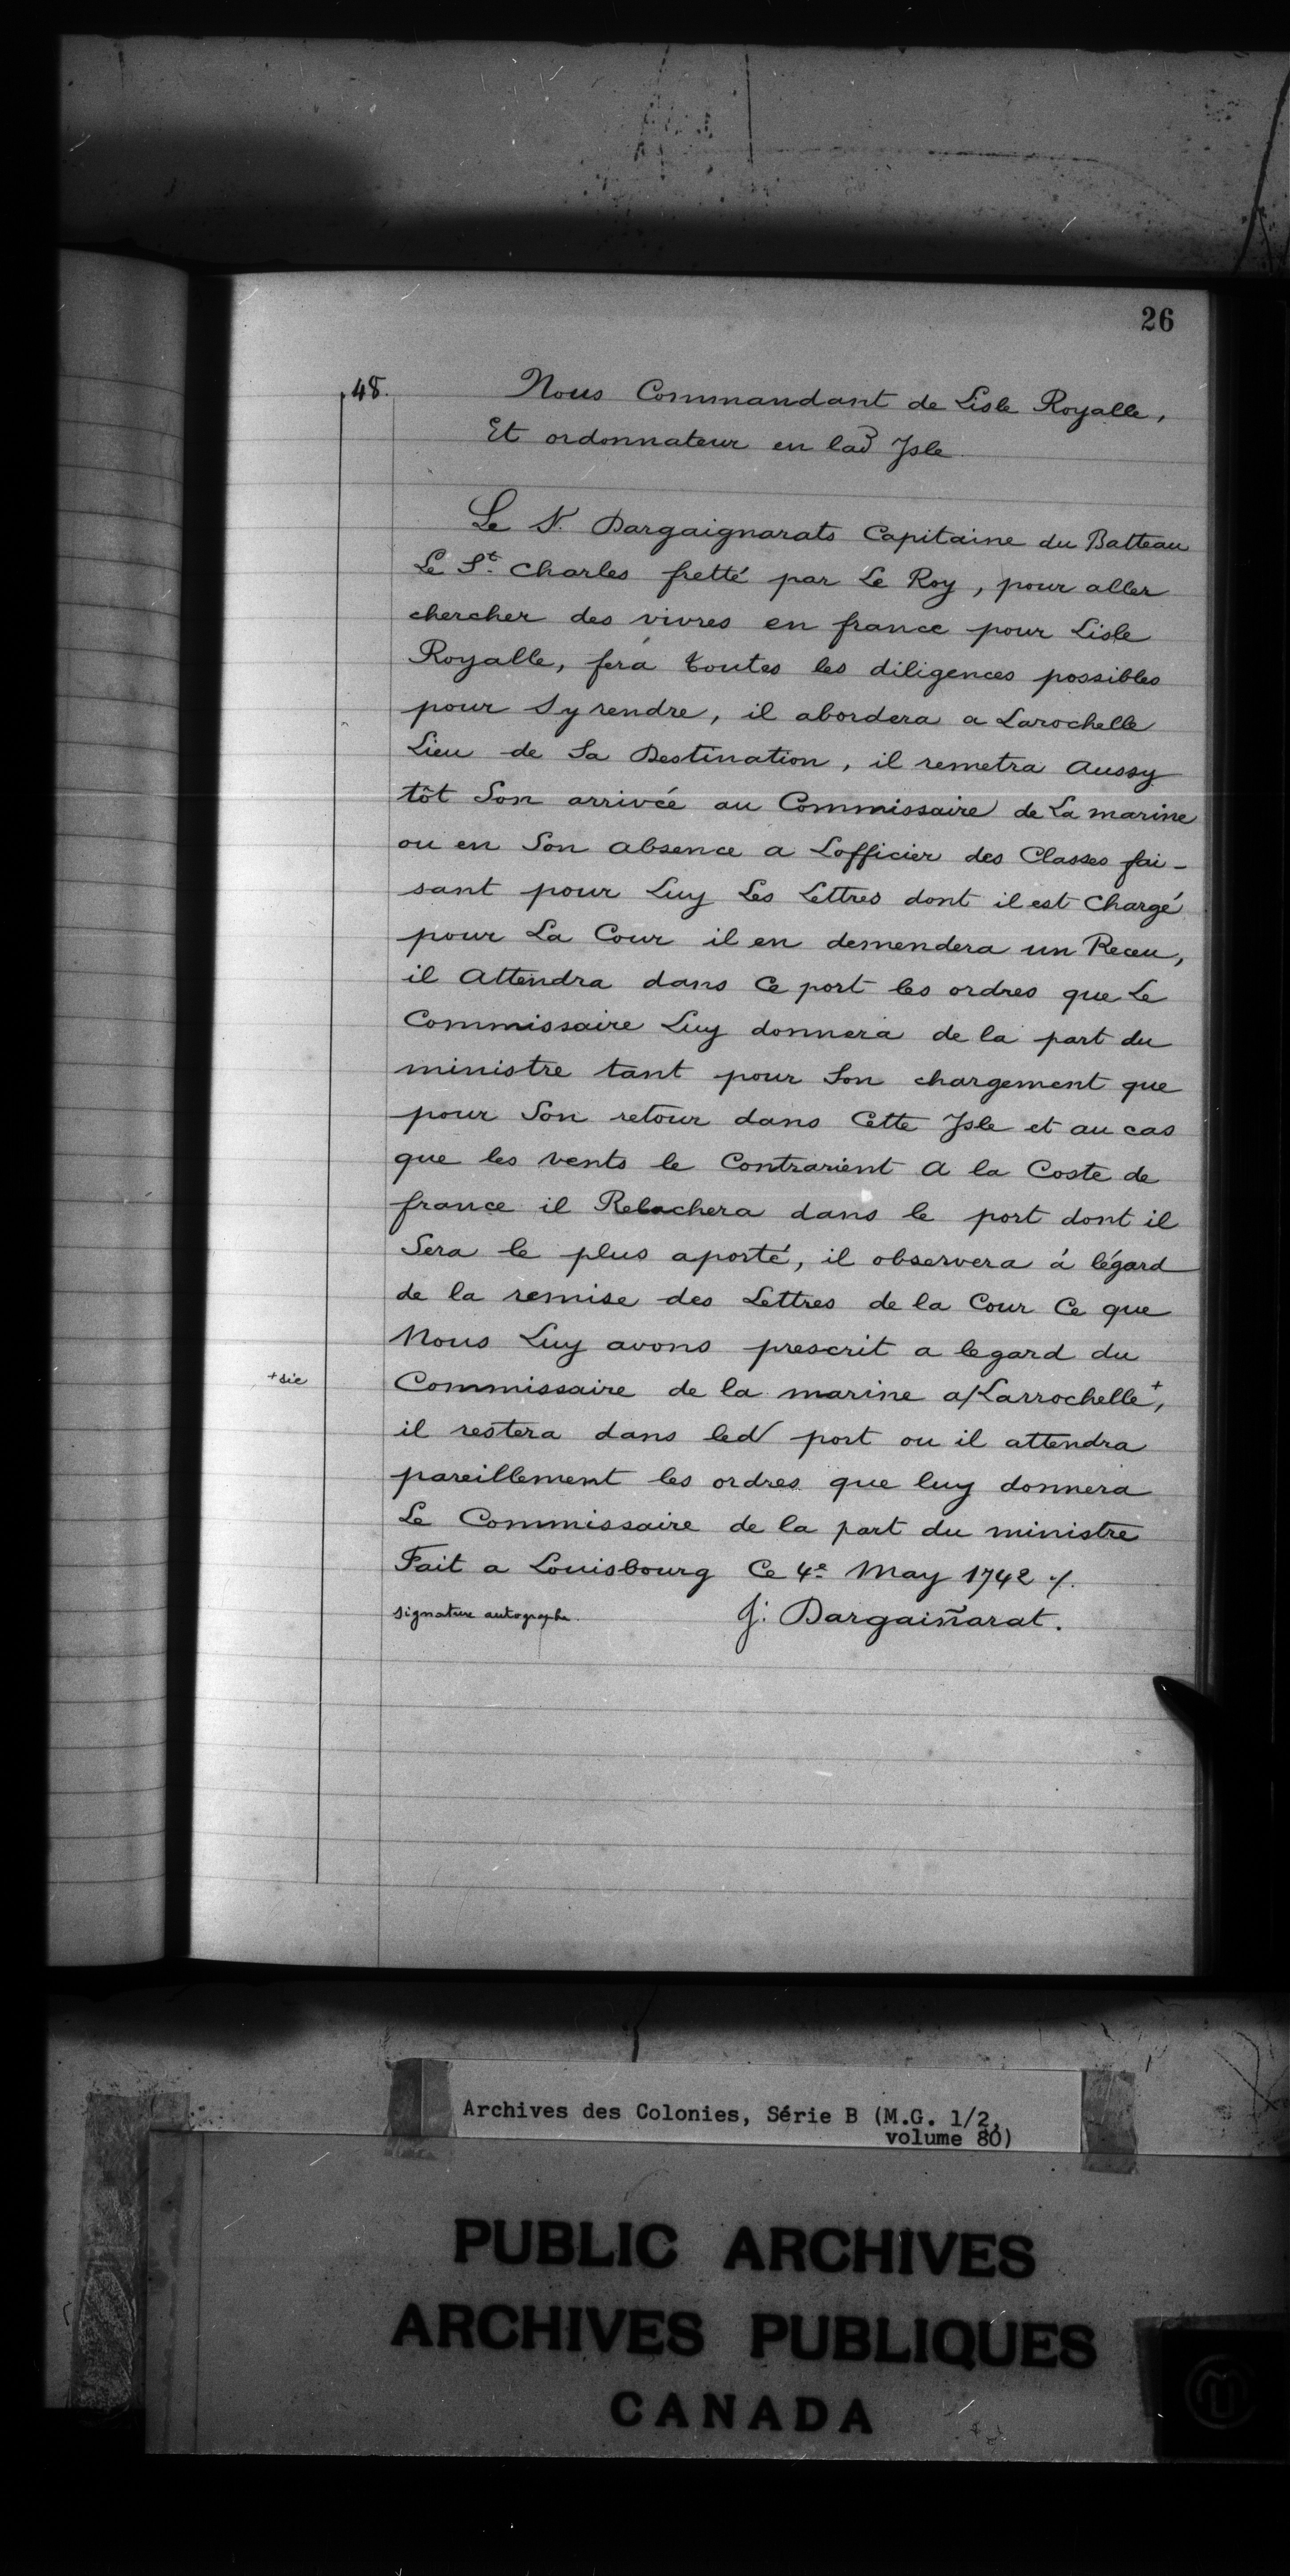 26
48.
Nous Commandant de Lisle Royalle,
Et ordonnateur en lad Jsle
Le Sr. Dargaignarats Capitaine du Batteau
Le St. Charles fretté par Le Roy, pour aller
chercher des vivres en france pour Lisle
Royalle, fera toutes les diligences possibles
pour Sy rendre, il abordera a Larochelle
Lieu de Sa Destination, il remetra Aussy
tôt Son arrivée au Commissaire de La marine
ou en Son absence a Lofficier des Classes fai-
sant pour Luy Les Lettres dont il est Chargé
pour La Cour il en demendera un Receu,
il Attendra dans Ce port les ordres que Le
Commissaire Luy donnera de la part du
ministre tant pour Son chargement que
pour Son retour dans Cette Jsle et au cas
que les vents le Contrarient A la Coste de
france il Relachera dans le port dont il
Sera le plus aporté, il observera á légard
de la remise des Lettres de la Cour Ce que
Nous Luy avons prescrit a legard du
+ sic
Commissaire de la marine a/Larrochelle+,
il restera dans led port ou il attendra
pareillement les ordres que luy donnera
Le Commissaire de la part du ministre
Fait a Louisbourg Ce 4e May 1742 ./.
signature autographe. J: Dargaiñarat.
Archives des Colonies, Série B (M.G. 1/2,
volume 80)
PUBLIC ARCHIVES
ARCHIVES PUBLIQUES
CANADA